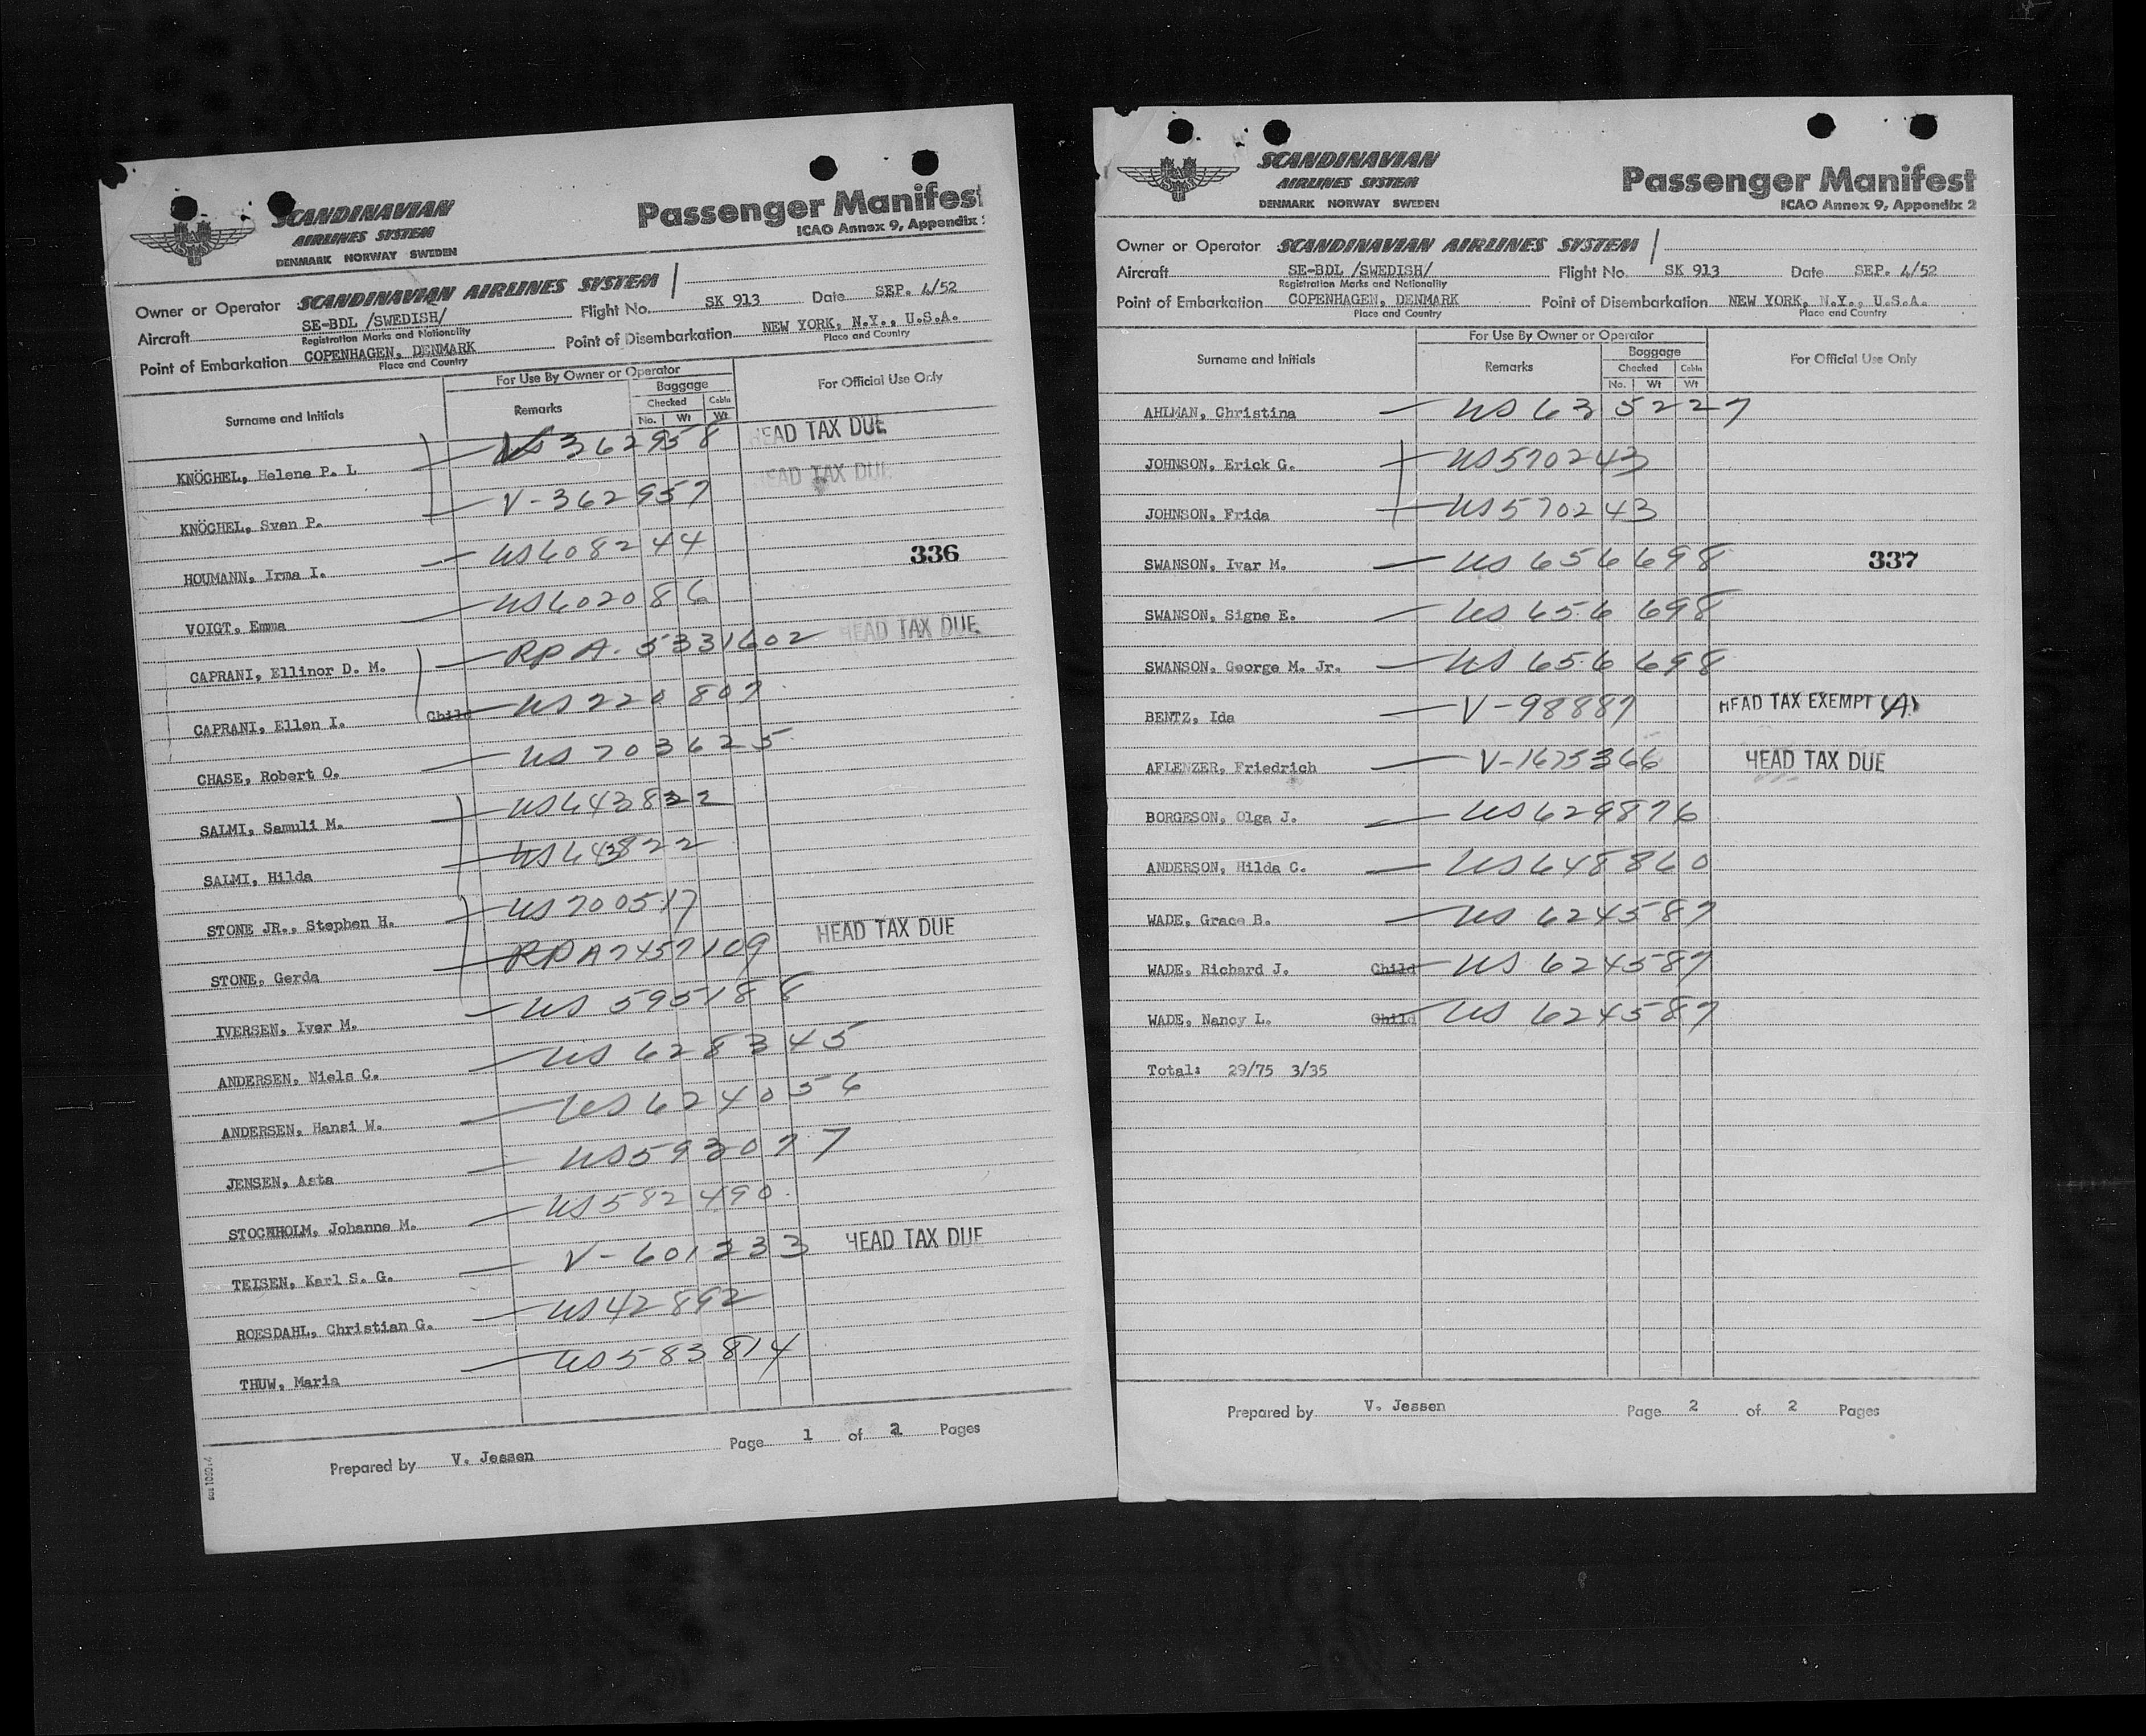 SCANDINAVIAN
AIRLINES SYSTEM
DENMARK NORWAY SWEDEN
Passenger Manifest
ICAO Annex 9, Appendix
Owner or Operator SCANDINAVIAN AIRLINES SYSTEM
Aircraft SE-BDL /SWEDISH/ Flight No. SK 913 Date SEP. 4/52
Registration Marks and Nationality
Point of Embarkation COPENHAGEN, DENMARK Point of Disembarkation NEW YORK, N.Y., U.S.A.
Place and Country Place and Country
For Use By Owner or Operator
Surname and Initials Remarks Baggage For Official Use Only
Checked Cabin
No. Wt Wt
KNÖCHEL, Helene P. L US 362958 HEAD TAX DUE
KNÖCHEL, Sven P. V-362957 HEAD TAX DUE
HOUMANN, Irma I. US608244
336
VOIGT, Emma US602086
CAPRANI, Ellinor D. M. RPA. 5331602 HEAD TAX DUE
CAPRANI, Ellen I. Child US 220807
CHASE, Robert O. US 7036625
SALMI, Samuli M. US643822
SALMI, Hilda US643822
STONE JR., Stephen H. US 700517
STONE, Gerda RPA7457109 HEAD TAX DUE
IVERSEN, Iver M. US 595188
ANDERSEN, Niels C. US 628345
ANDERSEN, Hansi W. US 624056
JENSEN, Asta US593077
STOCKHOLM, Johanne M. US582490
TEISEN, Karl S. G. V-601233 HEAD TAX DUE
ROESDAHL, Christian G. US42892
THUW, Maria US583814
Prepared by V. Jessen Page 1 of 2 Pages
SCANDINAVIAN
AIRLINES SYSTEM
DENMARK NORWAY SWEDEN
Passenger Manifest
ICAO Annex 9, Appendix 2
Owner or Operator SCANDINAVIAN AIRLINES SYSTEM
Aircraft SE-BDL /SWEDISH/ Flight No. SK 913 Date SEP. 4/52
Registration Marks and Nationality
Point of Embarkation COPENHAGEN, DENMARK Point of Disembarkation NEW YORK, N.Y., U.S.A.
Place and Country Place and Country
For Use By Owner or Operator
Surname and Initials Remarks Baggage For Official Use Only
Checked Cabin
No. Wt Wt
AHLMAN, Christina US 635227
JOHNSON, Erick G. US570243
JOHNSON, Frida US570243
SWANSON, Ivar M. US 656698 337
SWANSON, Signe E. US 656 698
SWANSON, George M. Jr. US 656 698
BENTZ, Ida V-98887 HEAD TAX EXEMPT (A)
AFLENZER, Friedrich V-1675366 HEAD TAX DUE
BORGESON, Olga J. US629876
ANDERSON, Hilda C. US648860
WADE, Grace B. US 624587
WADE, Richard J. Child US 624587
WADE, Nancy L. Child US 624587
Total: 29/75 3/35
Prepared by V. Jessen Page 2 of 2 Pages